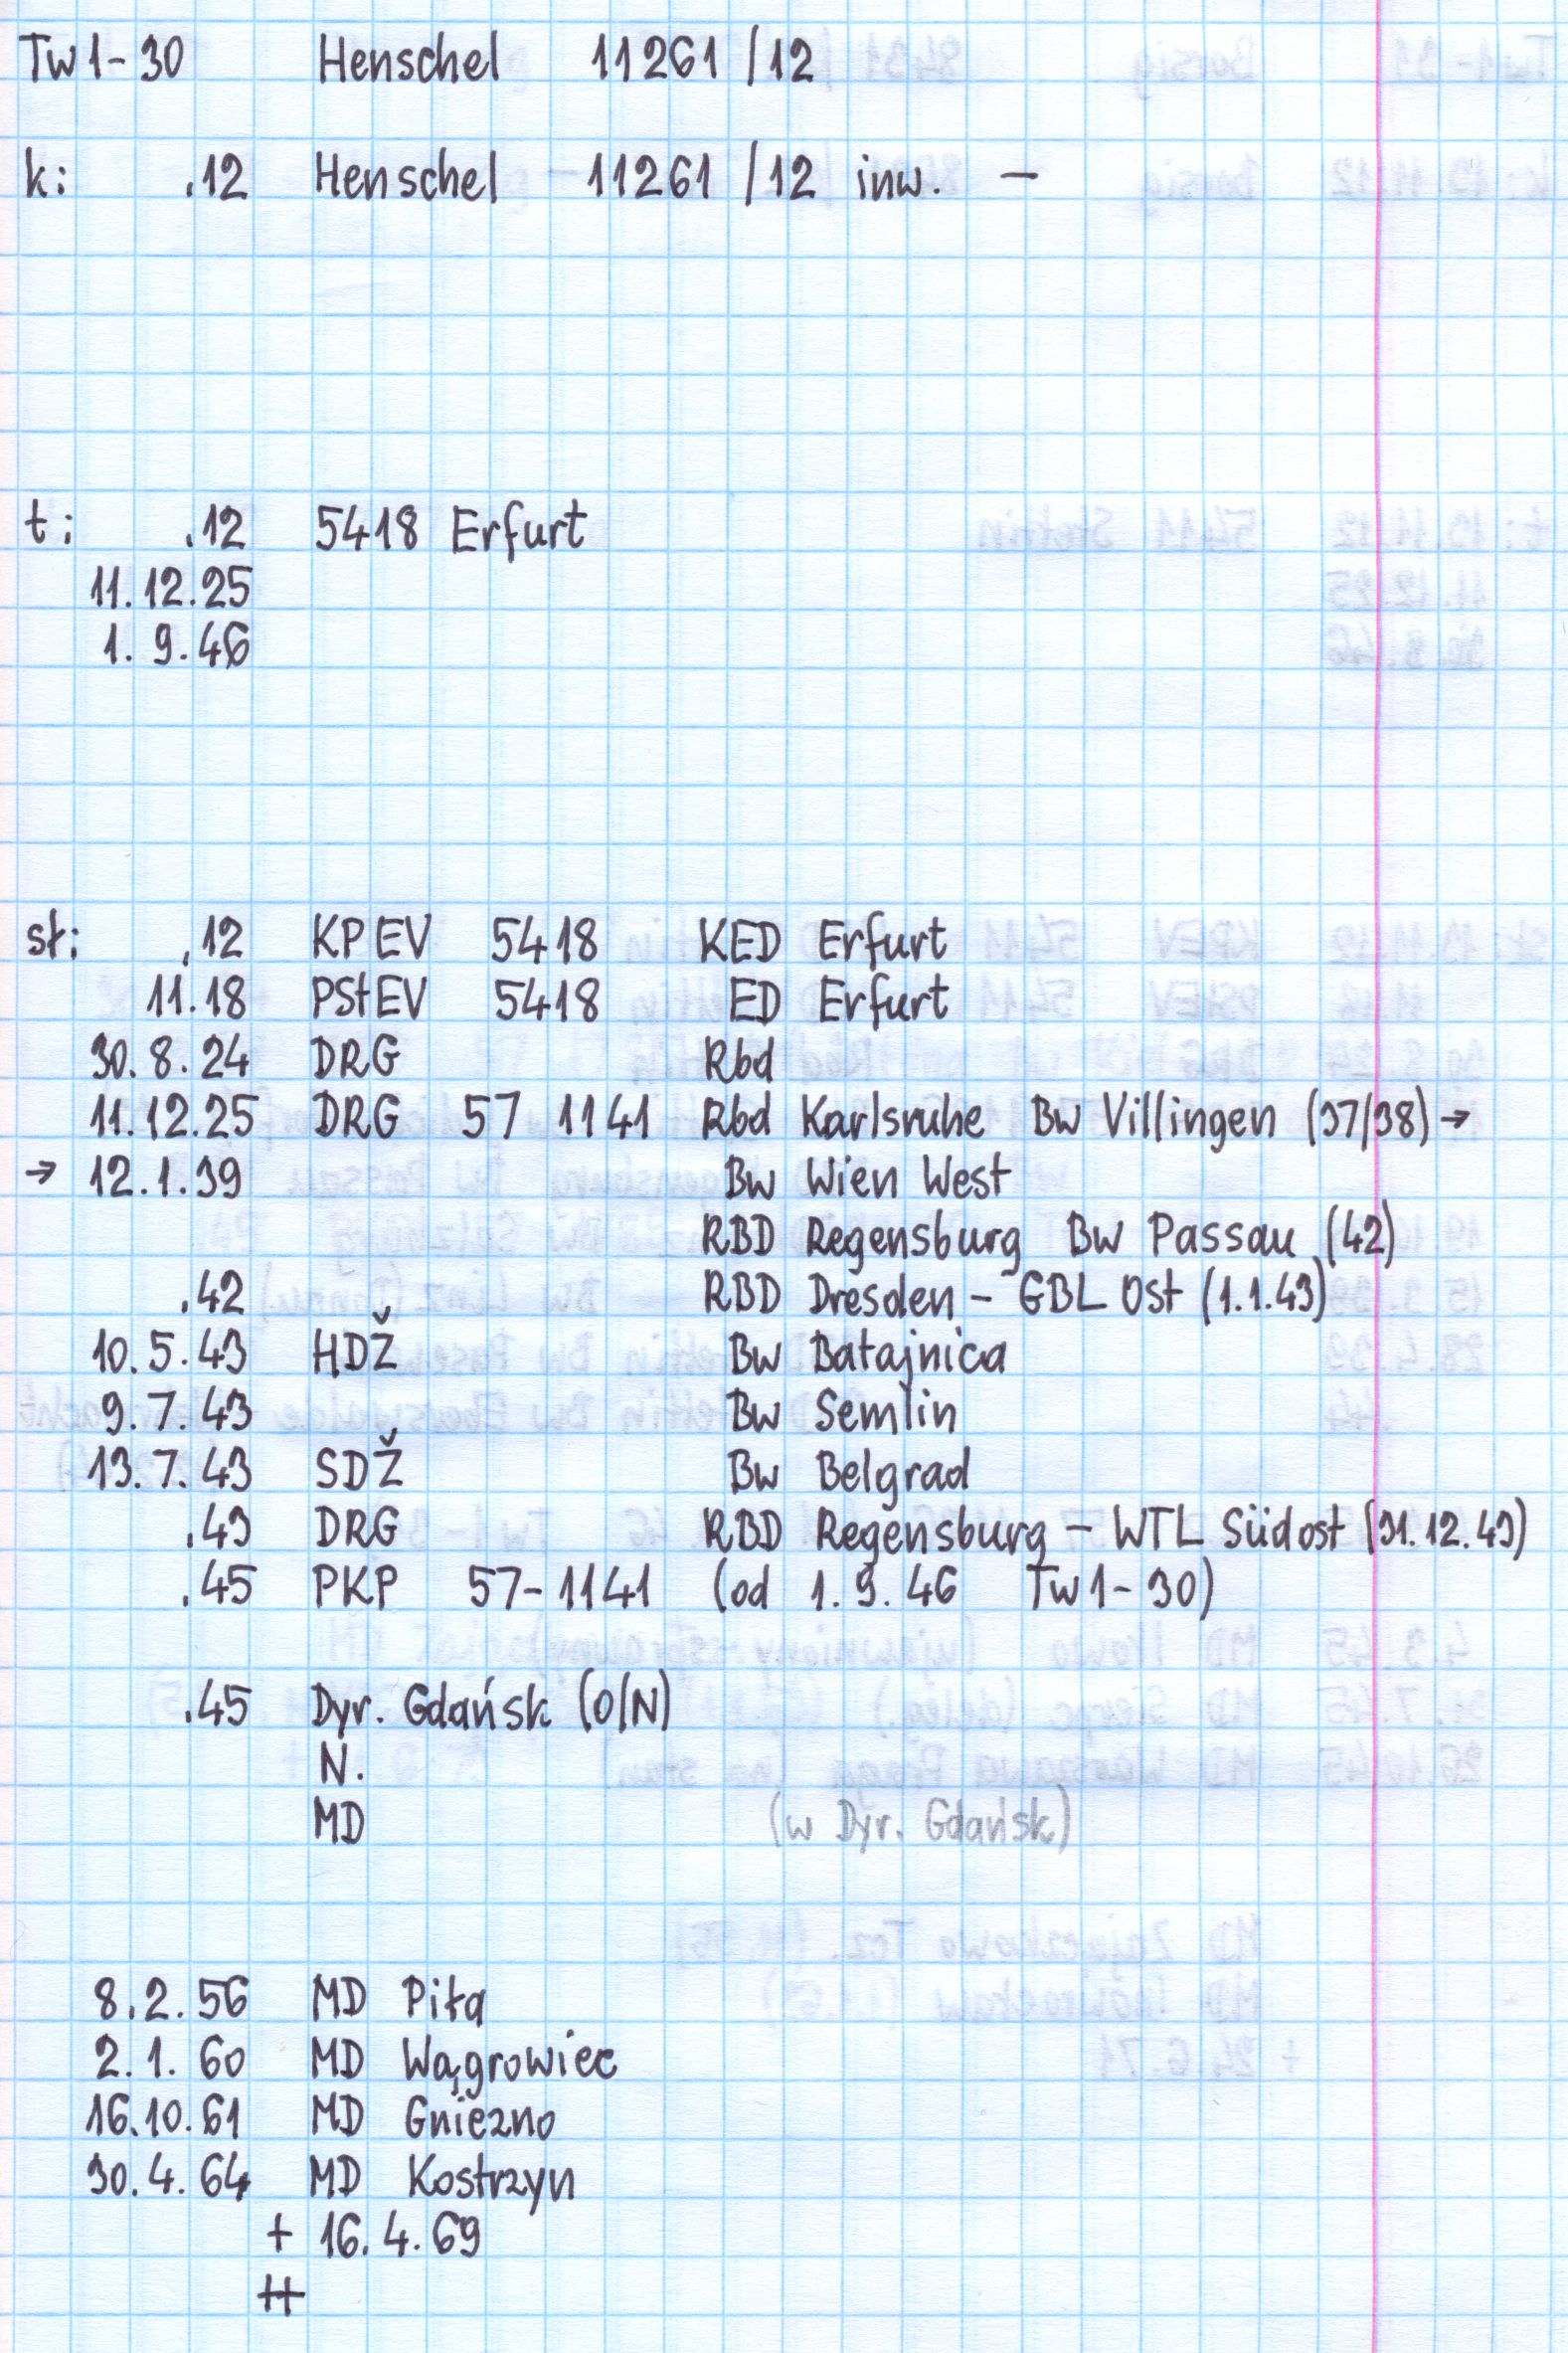 Tw1-30 Henschel 11261/12
k: .12 Henschel - 11261/12 inw. -
t: .12 5418 Erfurt
11.12.25
1.9.46
sł: .12 KPEV 5418 KED Erfurt
11.18 PStEV 5418 ED Erfurt
30.8.24 DRG Rbd
11.12.25 DRG 57 1141 Rbd Karlsruhe Bw Villingen (37/38) →
→ 12.1.39 Bw Wien West
RBD Regensburg Bw Passau (42)
.42 RBD Dresden - GBL Ost (1.1.43)
10.5.43 HDŽ Bw Batajnica
9.7.43 Bw Semlin
13.7.43 SDŽ Bw Belgrad
.43 DRG RBD Regensburg - WTL Südost (31.12.43)
.45 PKP 57-1141 (od 1.9.46 Tw1-30)
.45 Dyr. Gdańsk (O/N)
N.
MD (w Dyr. Gdańsk)
8.2.56 MD Piła
2.1.60 MD Wągrowiec
16.10.61 MD Gniezno
30.4.64 MD Kostrzyn
+ 16.4.69
++